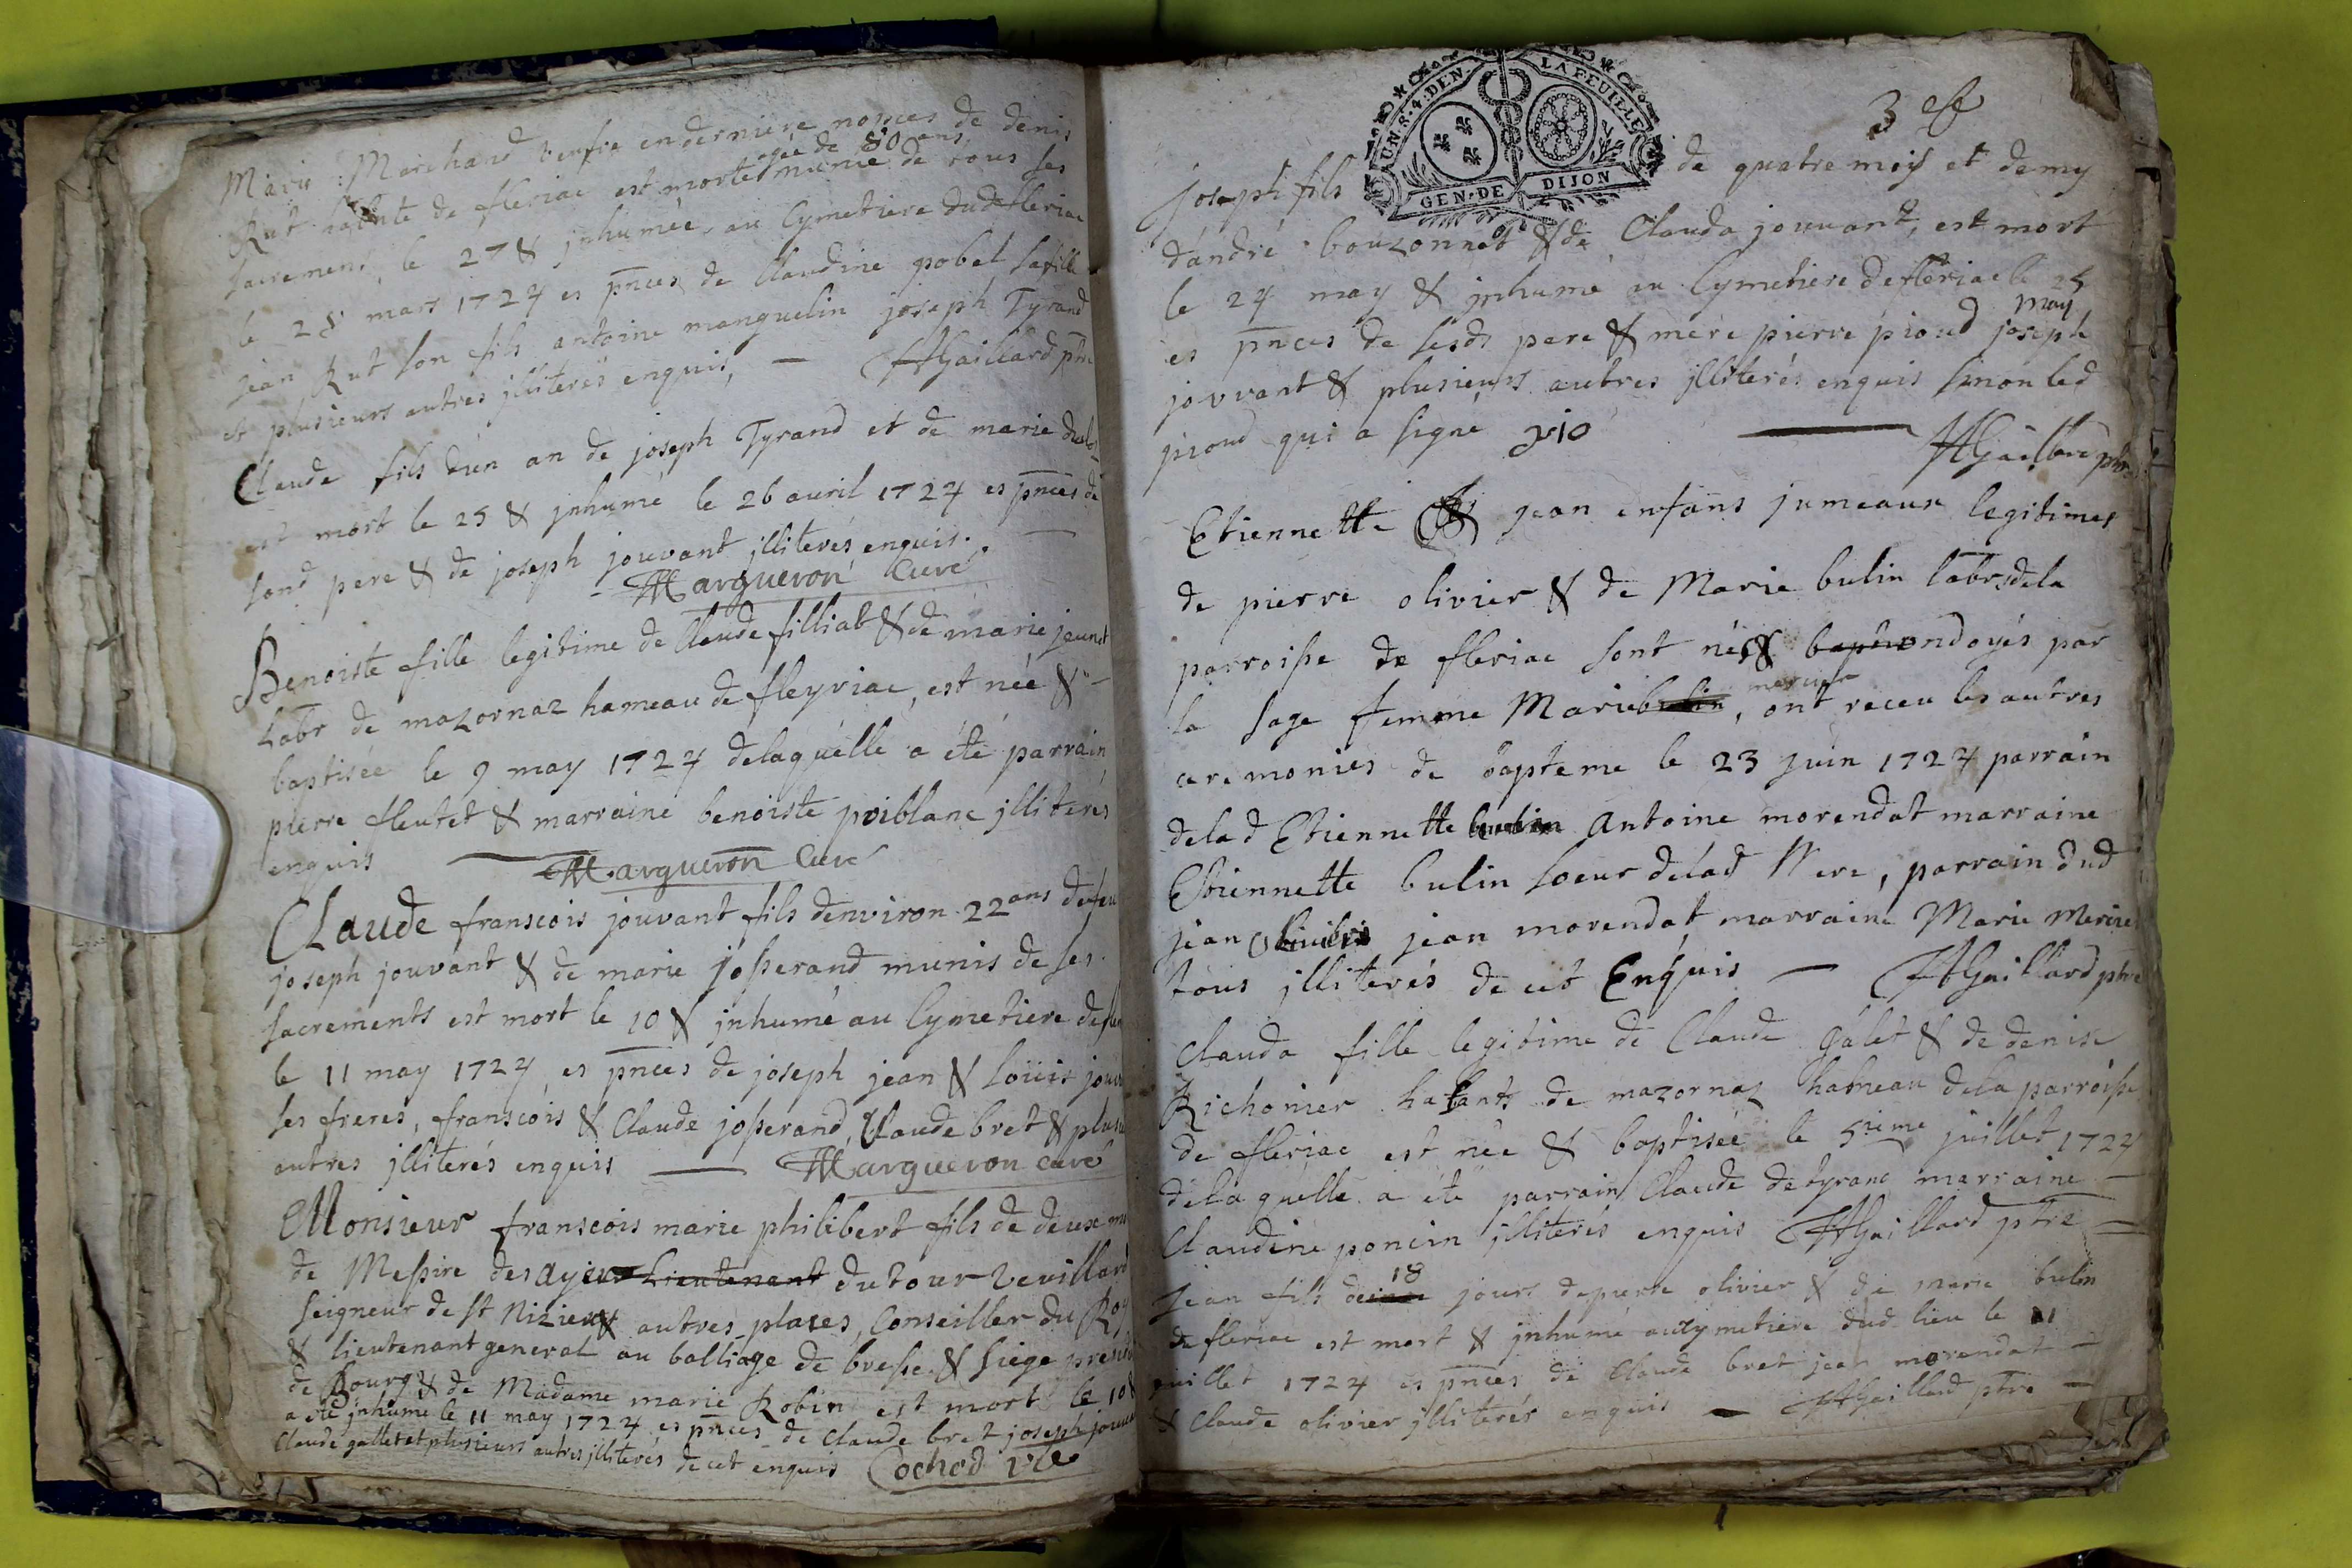 Marie Marchand venfve en derniere nopces de denis
Rut habnte de fleriac est morte agée de 80 ans munie de tous ses
sacremens le 27 & jnhumée au Cymetiere dud fleriac
le 28 mars 1724 es pnces de Claudine gobet sa fille
jean Rut son fils antoine manguelin joseph Tyrand
et plusieurs autres jlliterés enquis, — AGaillard ptre
Claude fils d'un an de joseph Tyrand et de marie
est mort le 25 & jnhumé le 26 auril 1724 es pnces de
sond pere & de joseph jouvant jlliterés enquis. —
Margueron Curé
Benoiste fille legitime de Claude filliat & de marie jeunet
Labr de mazornaz hameau de fleyriac, est née &
baptisée le 9 may 1724 delaquelle a été parrain
pierre fleutet & marraine benoiste poiblanc jlliterés
enquis — Margueron Curé
Claude franscois jouvant fils denviron 22 ans de feu
joseph jouvant & de marie josserand munis de ses
sacrements est mort le 10 & jnhumé au Cymetiere de
le 11 may 1724 es pnces de joseph jean & Loüis
ses freres, franscois & Claude josserand, Claude bret &
autres jlliterés enquis — Margueron curé
Monsieur franscois marie philibert fils de deux
de Messire des ayeux Lieutenant dutour vuillard
seigneur de st Nizier & autres places, Conseiller du Roy
& lieutenant general au balliage de bresse & siege
de Bourg & de Madame marie Robin est mort le 10 &
a été jnhumé le 11 may 1724 es pnces de Claude bret joseph
Claude gallet et plusieurs autres jlliterés de cet enquis Cochod vic
UN. S. 4. DEN. LA FEUILLE
GEN. DE DIJON
3
joseph fils de quatre mois et demy
d'andré bouzonnet & de Clauda jouvant, est mort
le 24 may & jnhumé au Cymetiere de fleriac le 25
may
es pnces de sesds pere & mere pierre pioud joseph
jouvant & plusieurs autres jlliterés enquis sinon led
pioud qui a signé pio — AGaillard ptre
Etiennette & jean enfans jumeaux legitimes
de pierre olivier & de Marie bulin labrs dela
parroisse de fleriac sont nés & ondoyés par
la sage femme Marie bulin mercier, ont receu les autres
ceremonies de bapteme le 23 juin 1724 parrain
delad Etiennette Antoine morendat marraine
Etiennette bulin soeur delad Mere, parrain dud
jean olivier jean morendat marraine Marie
tous jlliterés de cet Enquis — AGaillard ptre
Clauda fille legitime de Claude galet & de denise
Richonier habants de mazornaz hameau dela parroisse
de fleriac est née & baptisée le 5ieme juillet 1724
delaquelle a été parrain Claude detyranc marraine —
Claudine poncin jlliterés enquis AGaillard ptre —
jean fils de 18 jours de pierre olivier & de marie bulin
de fleriac est mort & jnhumé au cymetiere dud lieu le 11
juillet 1724 es pnces de Claude bret jean morendat —
& Claude olivier jlliterés enquis — AGaillard ptre —